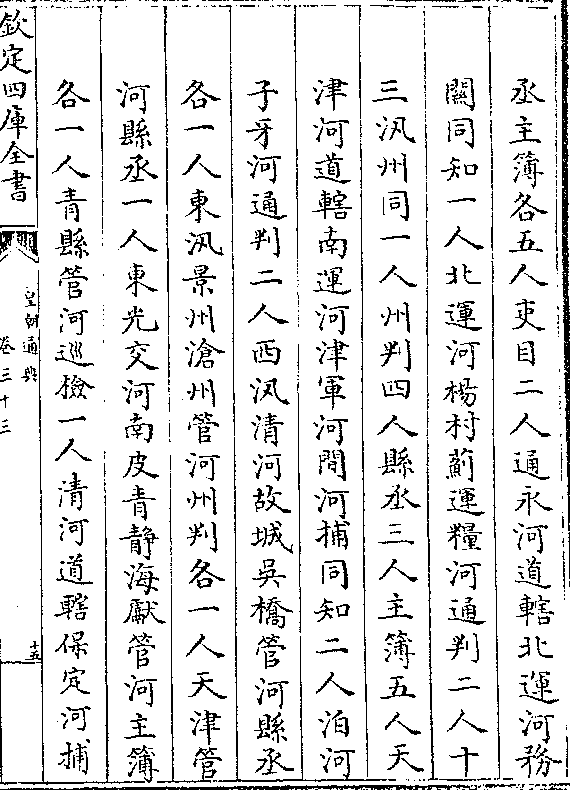 丞主簿各五人吏目二人通永河道轄北運河務
關同知一人北運河楊村薊運糧河通判二人十
三汛州同一人州判四人縣丞三人主簿五人天
津河道轄南運河津軍河間河捕同知二人泊河
子牙河通判二人西汛清河故城吳橋管河縣丞
各一人東汛景州滄州管河州判各一人天津管
河縣丞一人東光交河南皮青靜海獻管河主簿
各一人青縣管河巡檢一人清河道轄保定河捕
欽定四庫全書
皇朝通典
卷三十三
十五